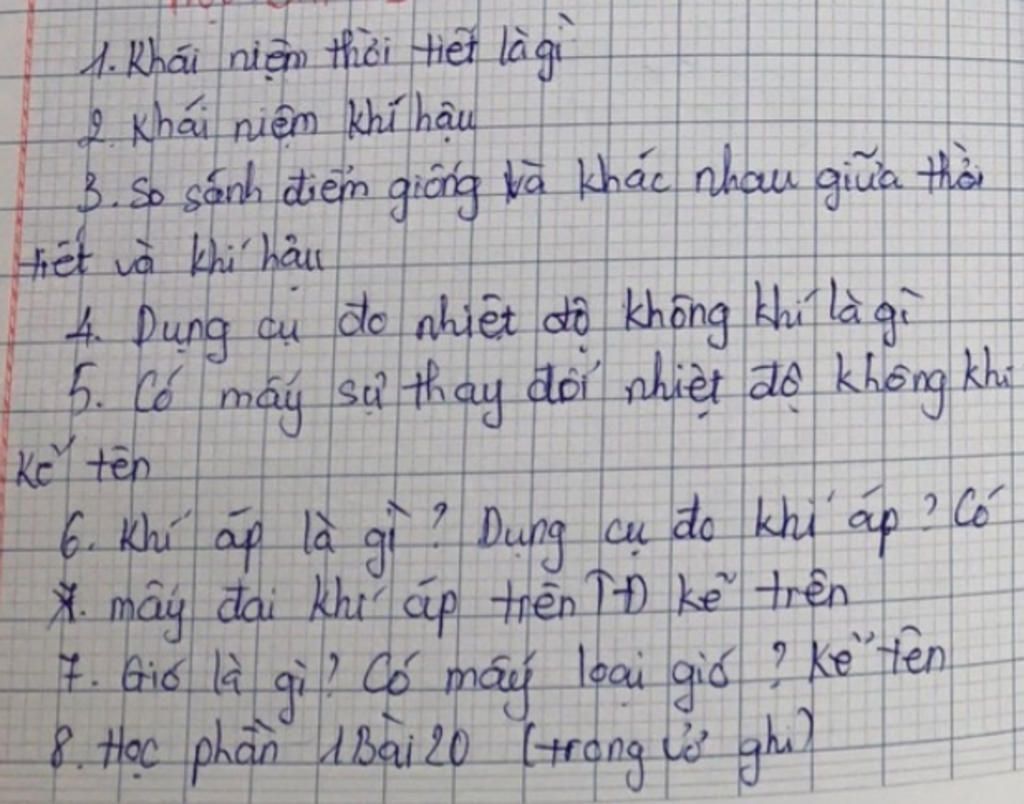 1. Khái niệm thời tiết là gì
2. Khái niệm khí hậu
3. So sánh điểm giống và khác nhau giữa thời
tiết và khí hậu
4. Dụng cụ đo nhiệt độ không khí là gì
5. Có mấy sự thay đổi nhiệt độ không khí
kể tên
6. Khí áp là gì? Dụng cụ đo khí áp? Có
mấy đai khí áp trên TĐ kể trên
7. Gió là gì? Có mấy loại gió? Kể tên
8. Học phần 1 Bài 20 (trong vở ghi)